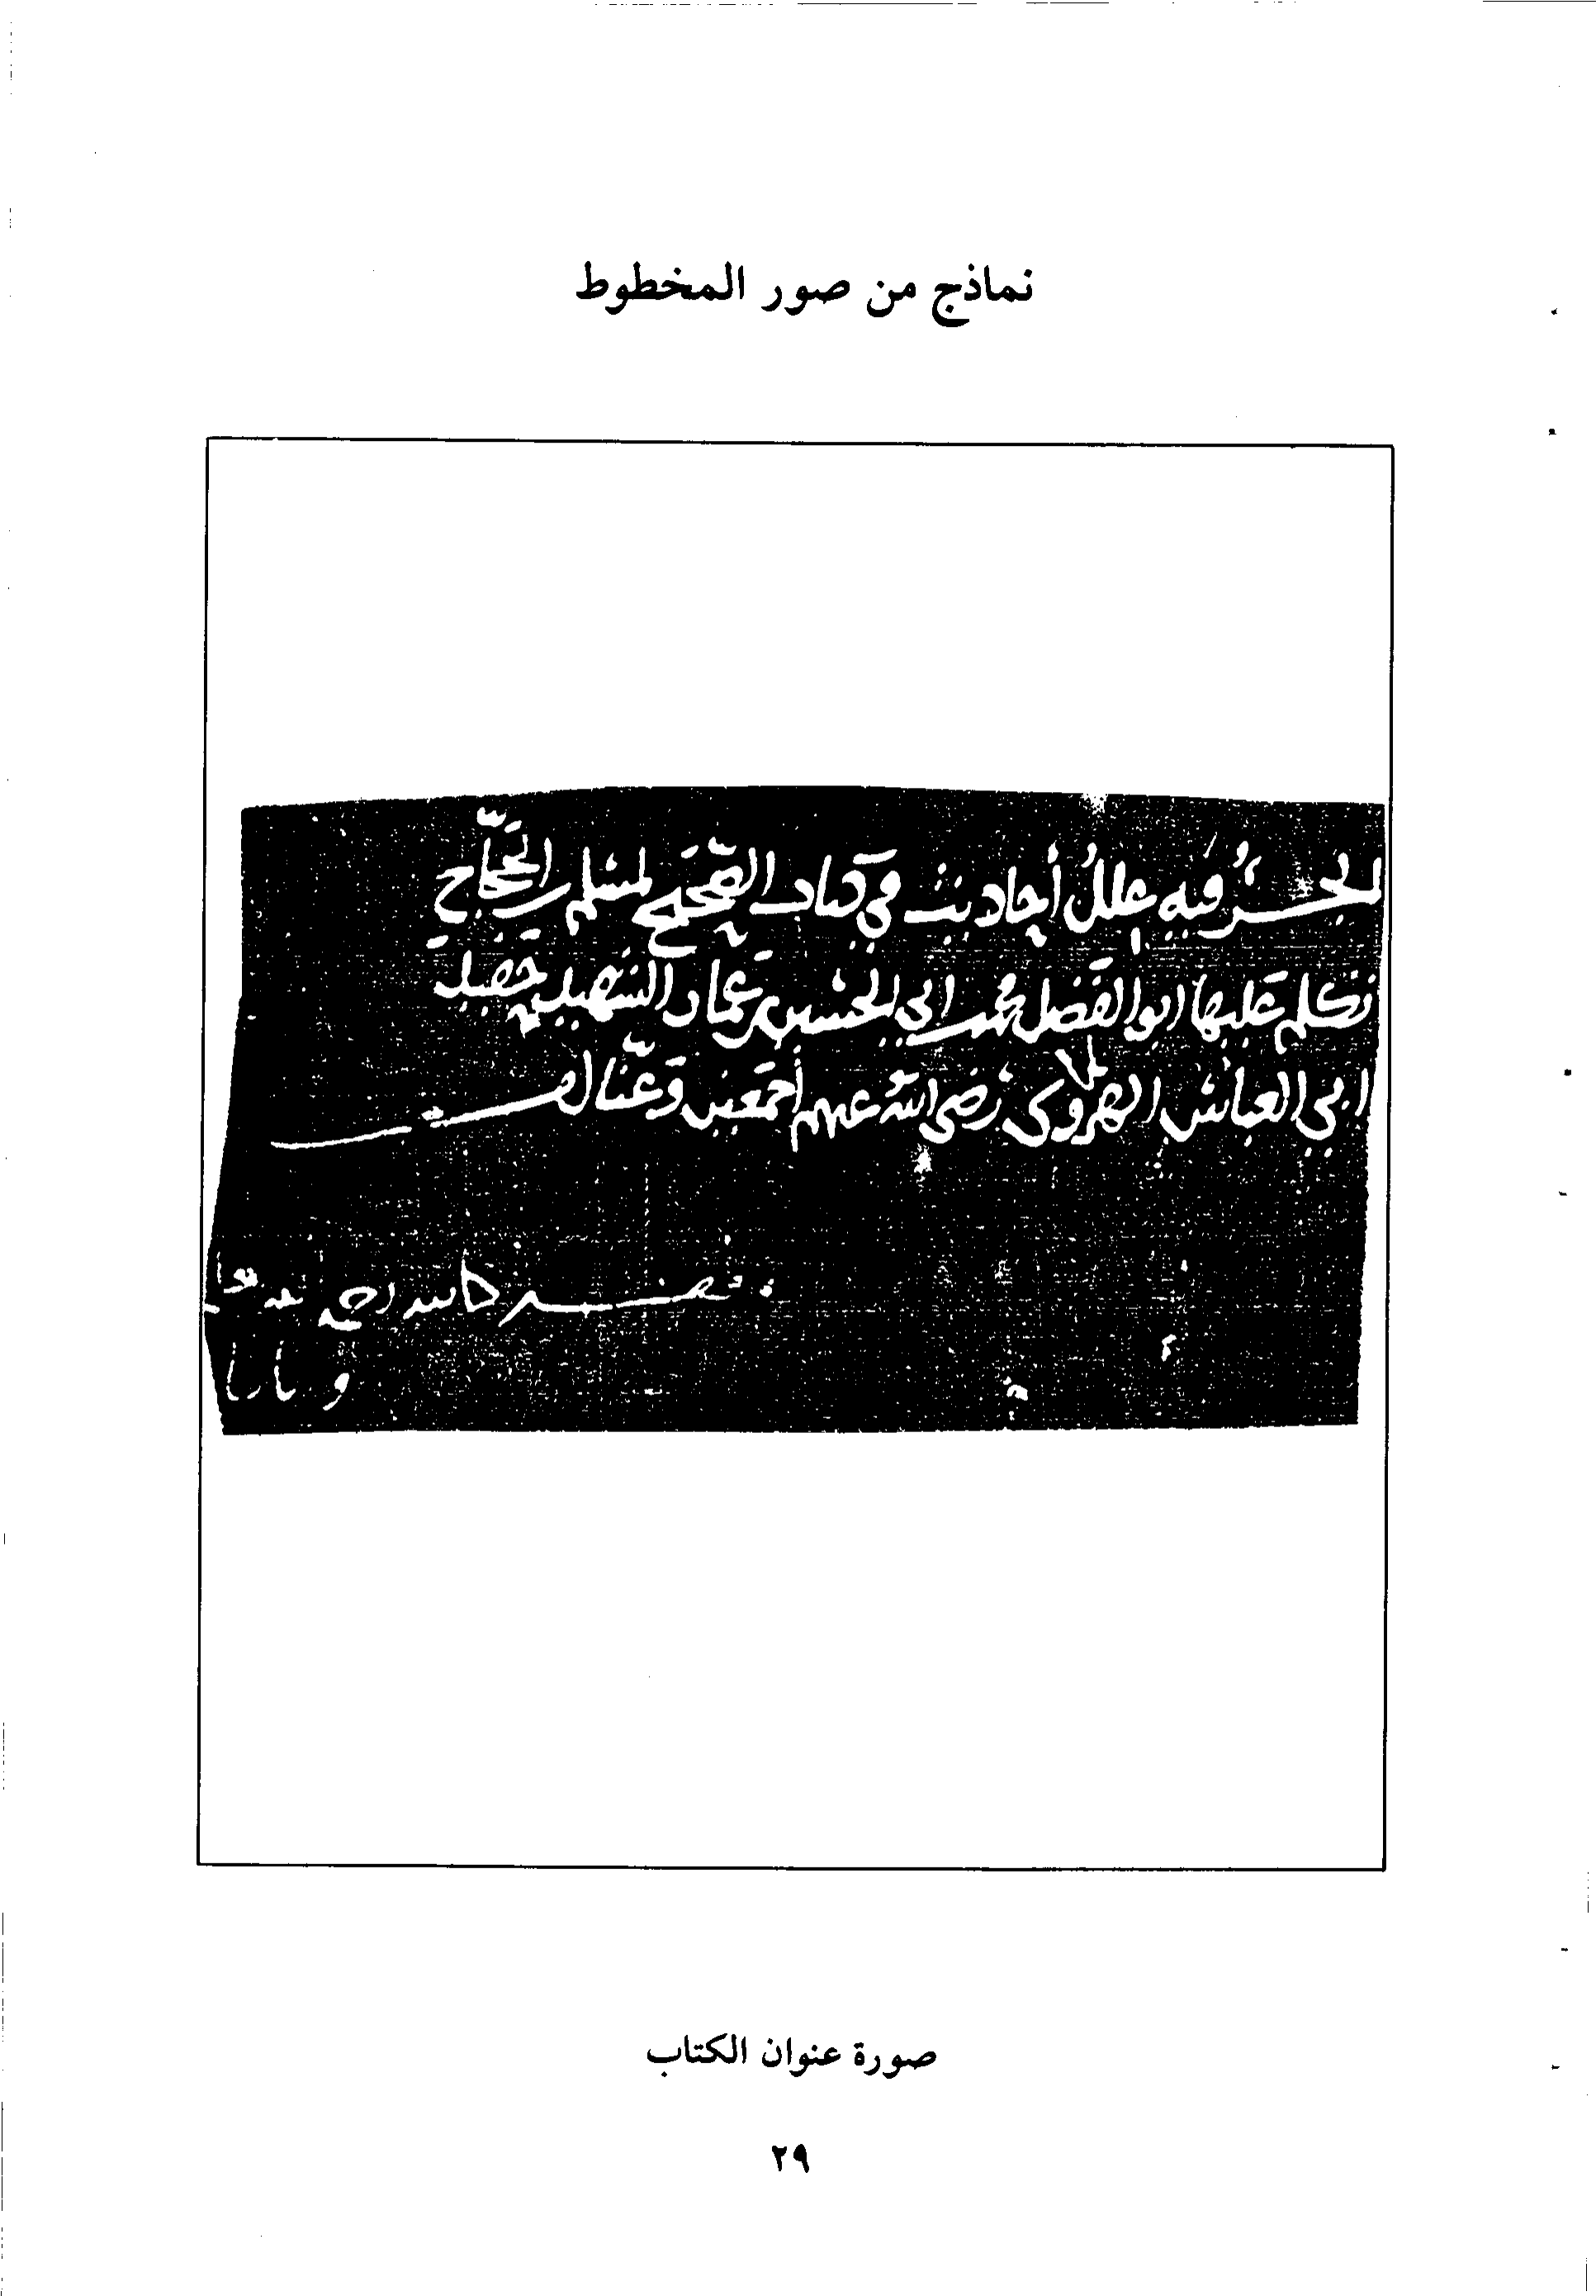 نماذج من صور المخطوط
الجزء فيه علل أحاديث في كتاب الصحيح لمسلم بن الحجاج
تكلم عليها ابو الفضل محمد بن ابي الحسين بن عمار الشهيد حفيد
ابي العباس الهروي رضي الله عنهم أجمعين وعنا
صورة عنوان الكتاب
٢٩